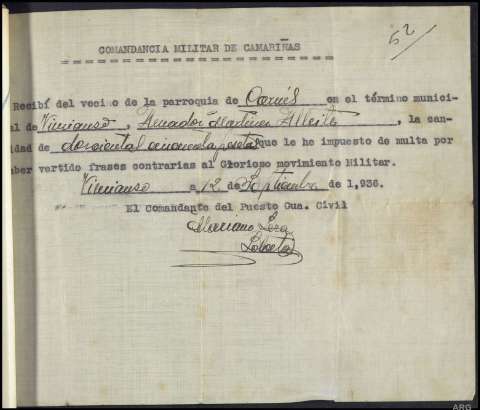 52
COMANDANCIA MILITAR DE CAMARIÑAS
Recibí del vecino de la parroquia de Carnés en el término munici-
al de Vimianso, Amador Martinez Alleite, la can-
idad de doscientas cincuenta pesetas que le he impuesto de multa por
ber vertido frases contrarias al Glorioso movimiento Militar.
Vimianso a 12 de Septiembre de 1,936.
El Comandante del Puesto Gua. Civil
Mariano
ARG